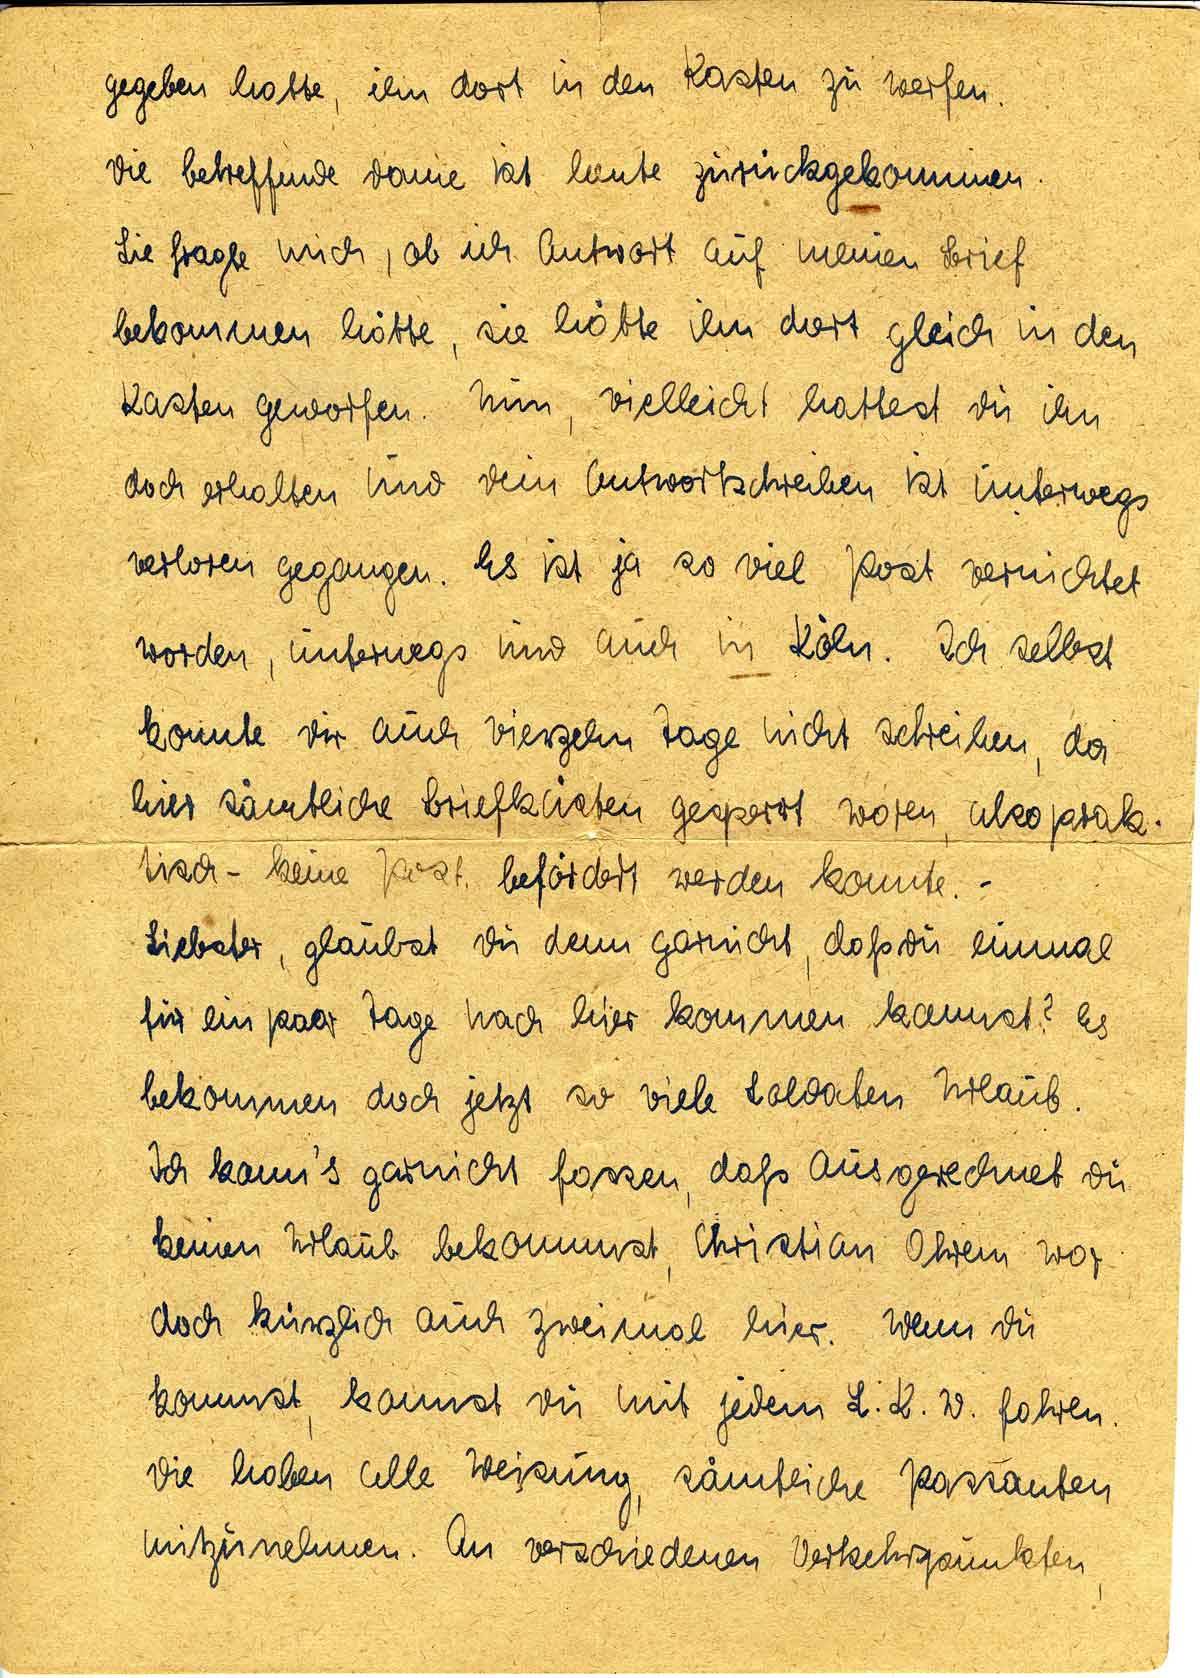 gegeben hatte, ihn dort in den Kasten zu werfen.
Die betreffende Dame ist heute zurückgekommen.
Sie fragte mich, ob ich Antwort auf meinen Brief
bekommen hätte, sie hätte ihn dort gleich in den
Kasten geworfen. Nun, vielleicht hattest du ihn
doch erhalten und dein Antwortschreiben ist unterwegs
verloren gegangen. Es ist ja so viel Post vernichtet
worden, unterwegs und auch in Köln. Ich selbst
konnte dir auch vierzehn Tage nicht schreiben, da
hier sämtliche Briefkästen gesperrt waren, also prak-
tisch - keine Post befördert werden konnte. -
Liebster, glaubst du denn garnicht, daß du einmal
für ein paar Tage nach hier kommen kannst? Es
bekommen doch jetzt so viele Soldaten Urlaub.
Ich kann's garnicht fassen, daß ausgerechnet du
keinen Urlaub bekommst, Christian Ohrem war
doch kürzlich auch zweimal hier. Wenn du
kommst, kannst du mit jedem L.K.W. fahren.
Die haben alle Weisung, sämtliche Passanten
mitzunehmen. An verschiedenen Verkehrspunkten,